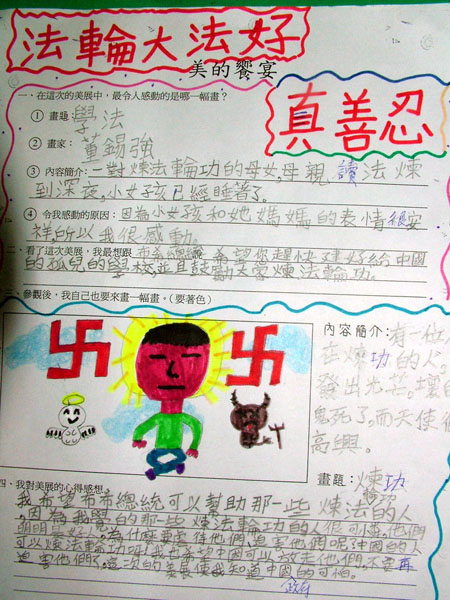 法輪大法好
美的饗宴
真善忍
一、在這次的美展中，最令人感動的是哪一幅畫？
① 畫題：學法
② 畫家：董錫強
③ 內容簡介：一對煉法輪功的母女，母親讀法煉
到深夜，小女孩已經睡著了。
④ 令我感動的原因：因為小女孩和她媽媽的表情很安
祥所以我很感動。
二、看了這次美展，我最想跟布希總統 希望您趕快建好給中國
的孤兒的學校並且鼓勵大家煉法輪功。
三、參觀後，我自己也要來畫一幅畫。（要著色）
內容簡介：有一位
煉功的人，
發出光芒，壞的
鬼死了，而天使很
高興。
畫題：煉功
四、我對美展的心得感想。
我希望布希總統可以幫助那一些煉法的人
，因為我覺的那一些煉法輪功的人很可憐，他們
明明是好人，為什麼要迫害他們呢？中國的人
可以煉法輪功嗎？我也希望中國可以放走他們，不要再
迫害他們了，這次的美展使我知道中國的可怕。
政府